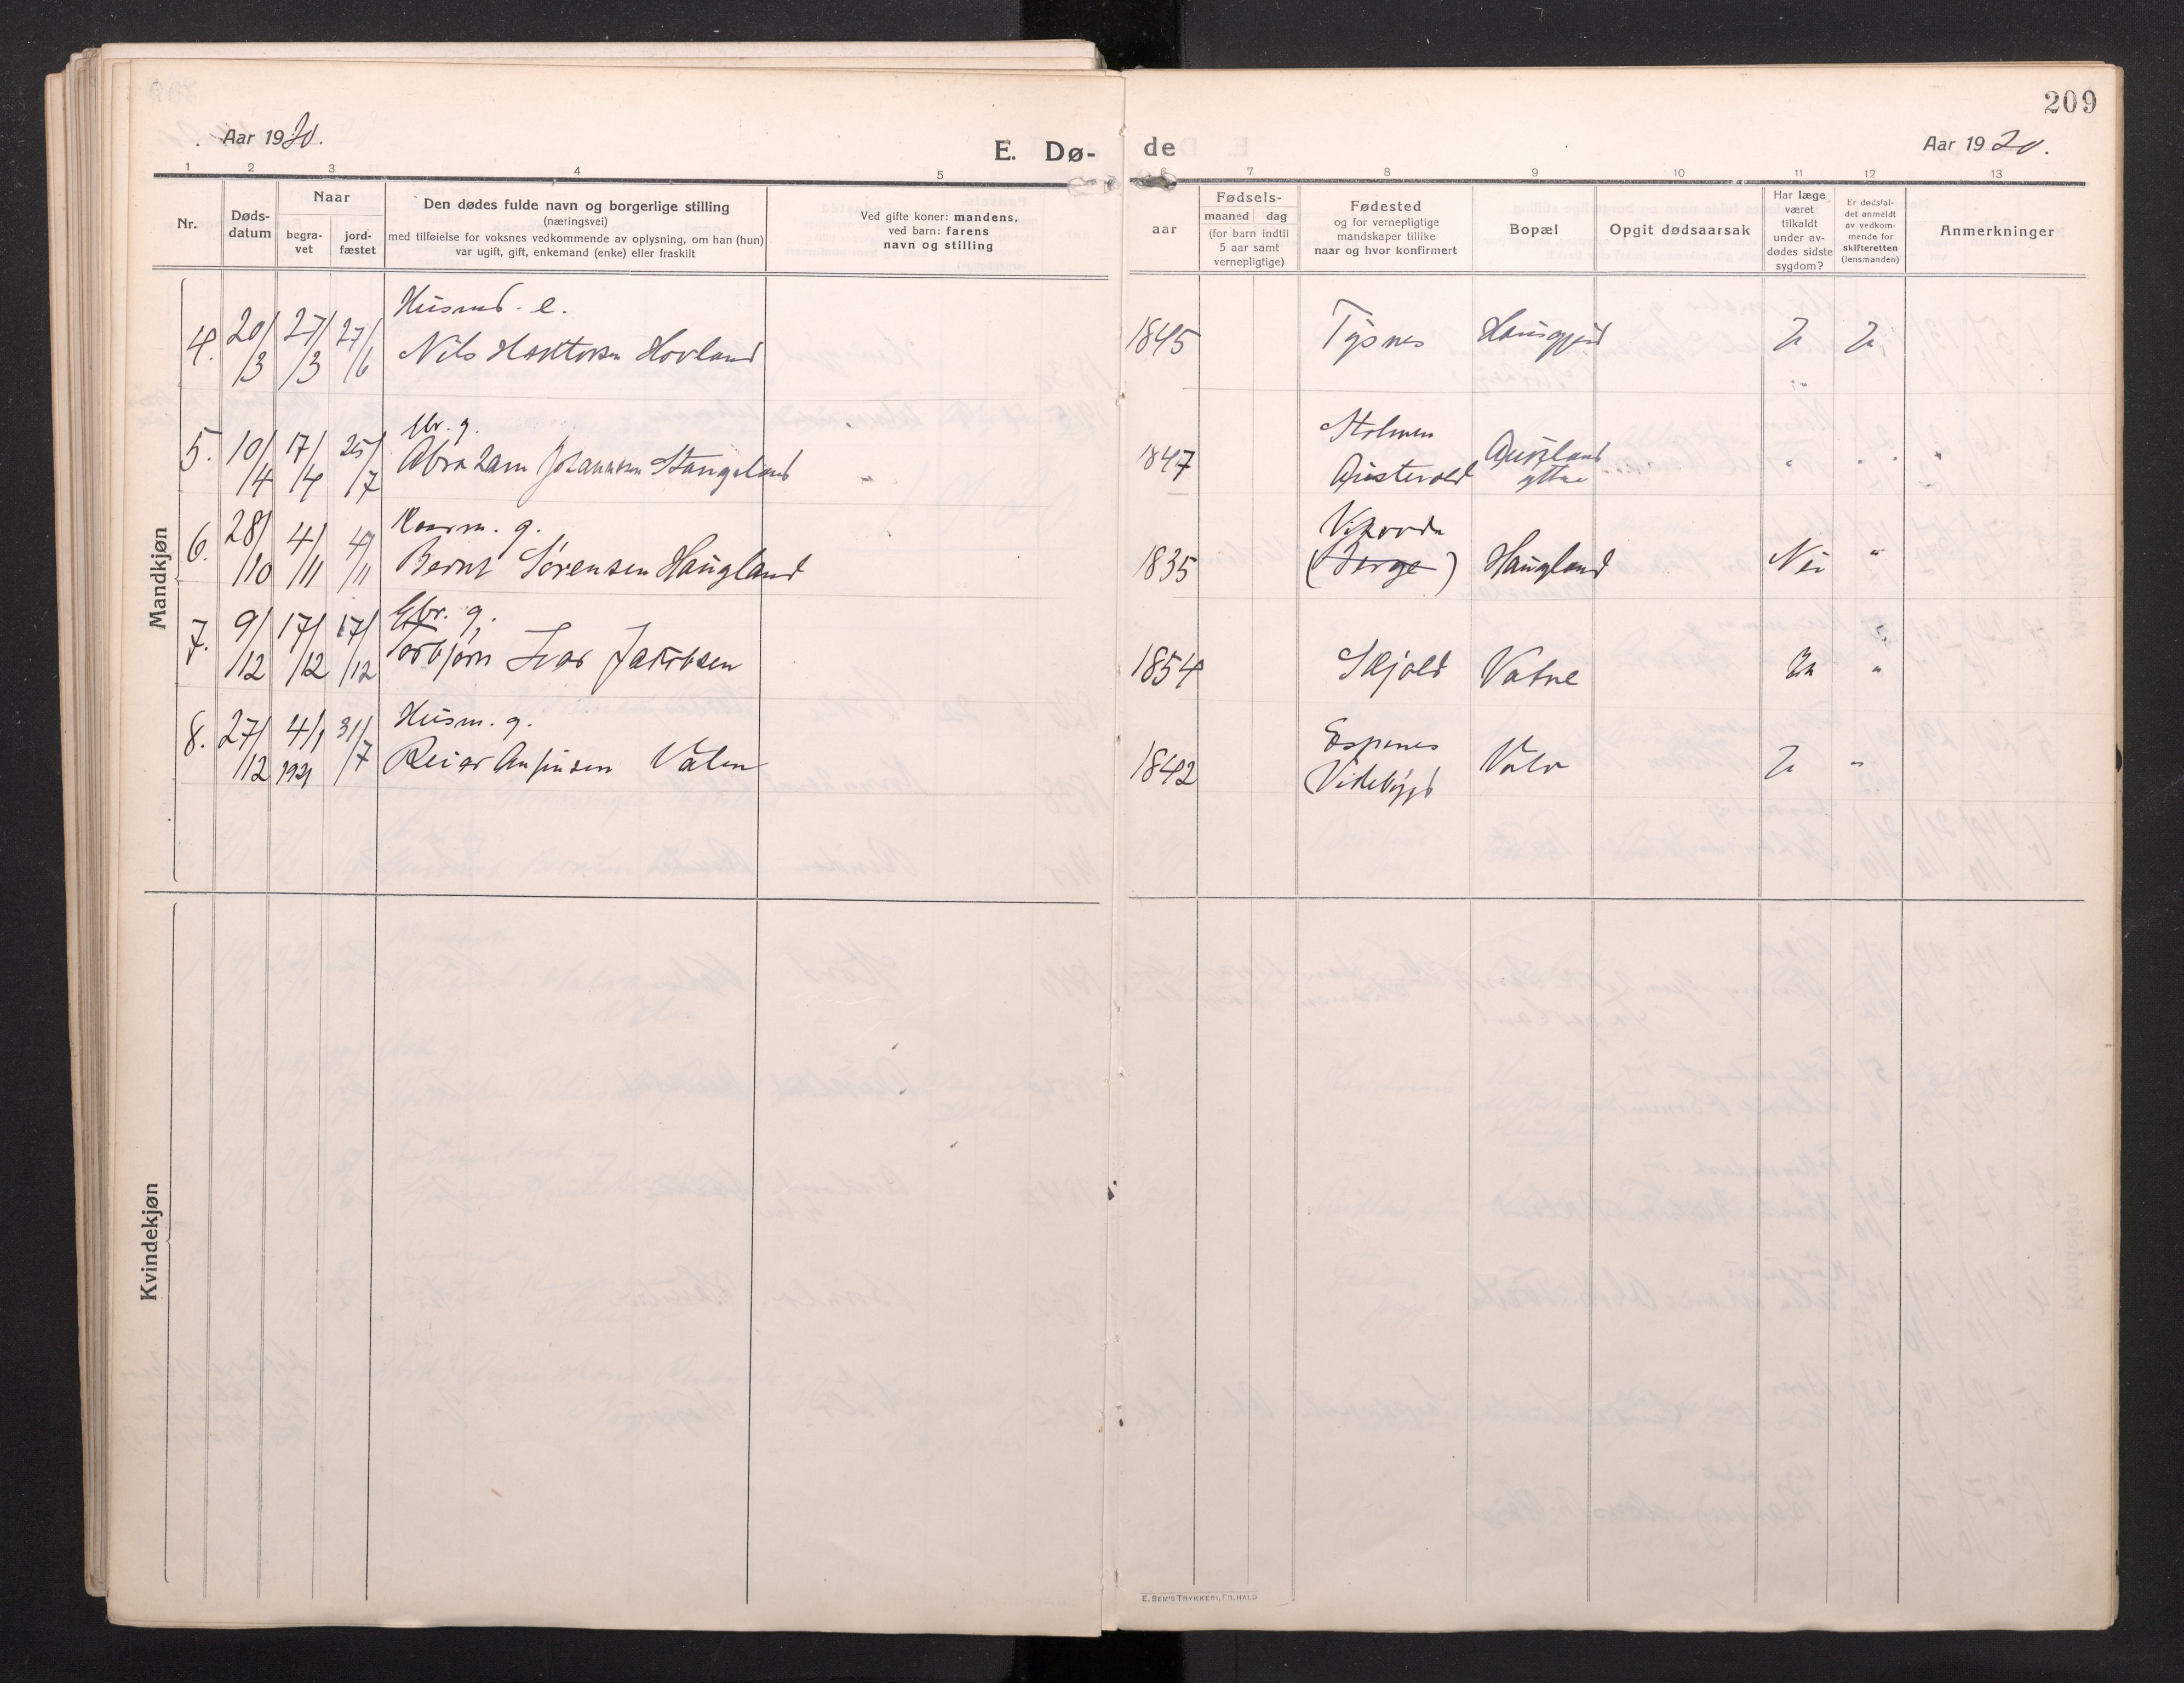 209
Aar 1920.
E. Dø-
de
Aar 1920.
1 2 3 4 5 6 7 8 9 10 11 12 13
Nr.
Døds-
datum
Naar
begra-
vet
jord-
fæstet
Den dødes fulde navn og borgerlige stilling
(næringsvei)
med tilføielse for voksnes vedkommende av oplysning, om han (hun)
var ugift, gift, enkemand (enke) eller fraskilt
Ved gifte koner: mandens,
ved barn: farens
navn og stilling
aar
Fødsels-
maaned dag
(for barn indtil
5 aar samt
vernepligtige)
Fødested
og for vernepligtige
mandskaper tillike
naar og hvor konfirmert
Bopæl
Opgit dødsaarsak
Har læge
været
tilkaldt
under av-
dødes sidste
sygdom?
Er dødsfal-
det anmeldt
av vedkom-
mende for
skifteretten
(lensmanden)
Anmerkninger
Mandkjøn
Husmd. e.
4. 20/3 27/3 27/6 Nils Hovland 1845 Tysnes Ja Ja
Gbr. g.
5. 10/4 17/4 25/7 Abraham Johannesen Stangeland 1847 Stolmen
Austevold Aukland
ytre " "
g.
6. 28/10 4/11 4/11 Bernt Sørensen Haugland 1835 Vikevik
(Berge) Haugland Nei "
Gbr. g.
7. 9/12 17/12 17/12 Torbjørn Ivar Jakobsen 1854 Skjold Vatne Ja "
Husm. g.
8. 27/12 4/1 1921 31/7 Reier Anfinsen Valen 1842 Espenes
Vikebygd Ja "
Kvindekjøn
E. SEM'S TRYKKERI, FR.HALD